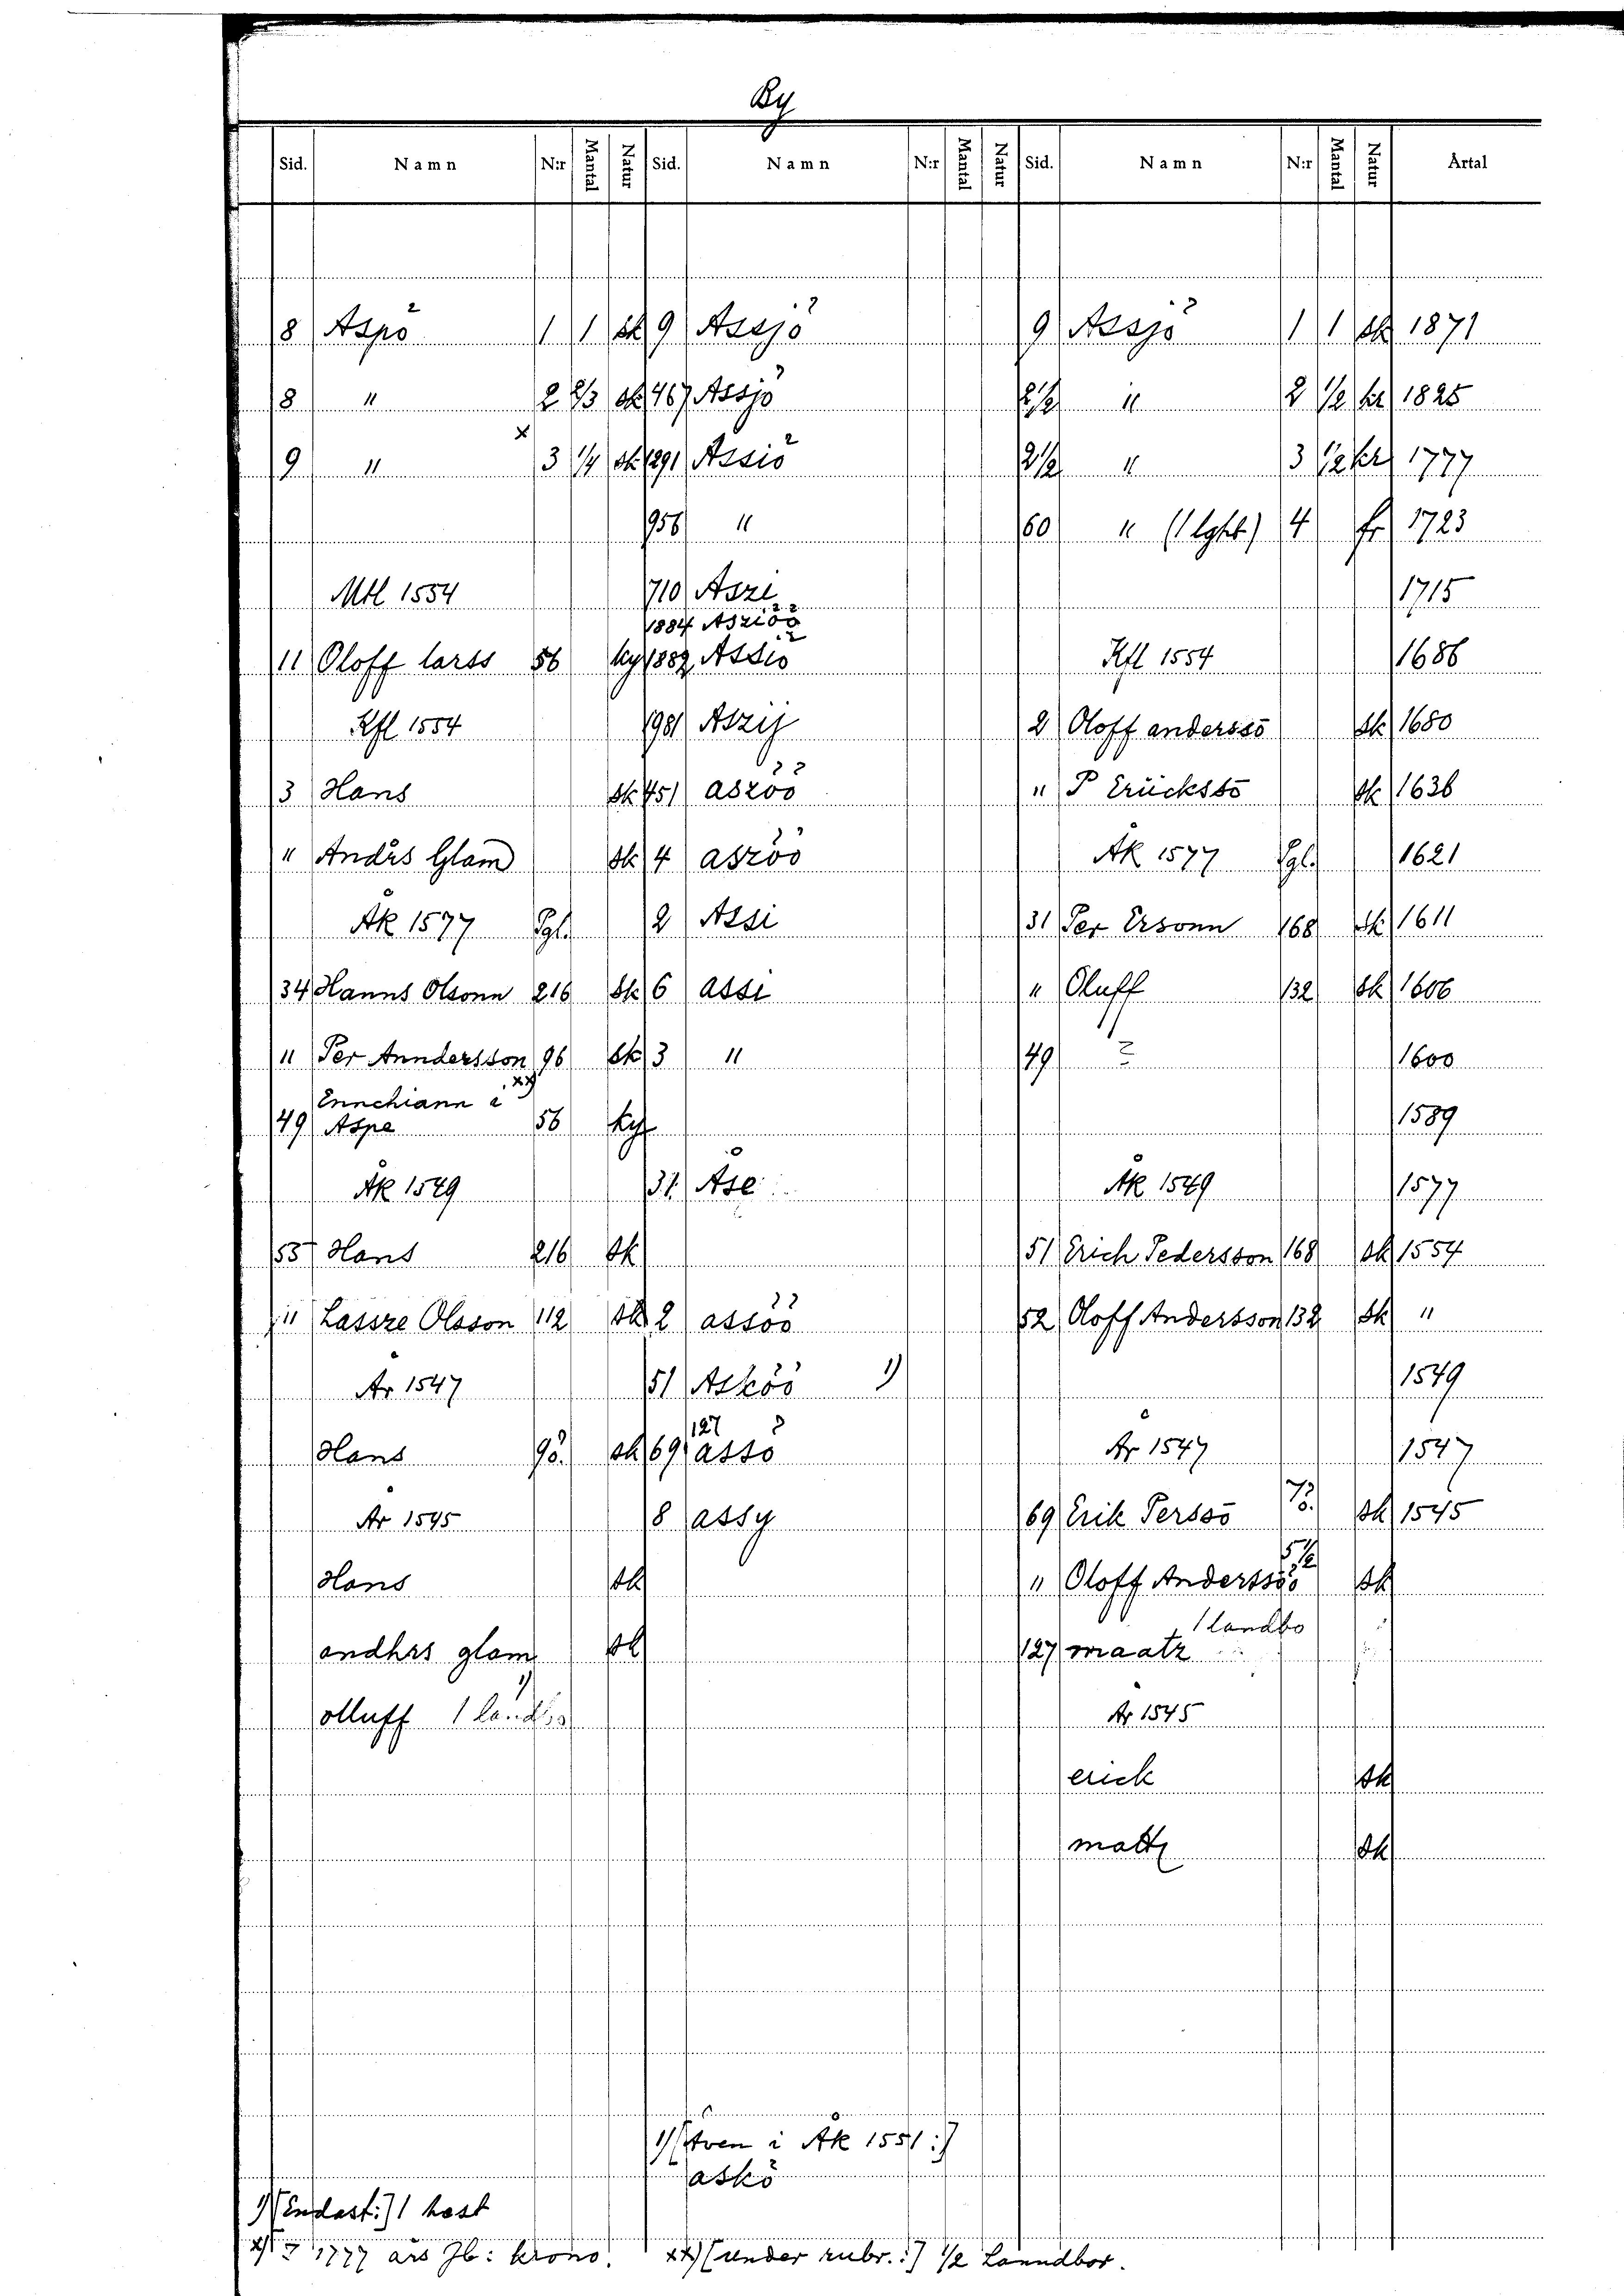 By
Sid. Namn N:r Mantal Natur Sid. Namn N:r Mantal Natur Sid. Namn N:r Mantal Natur Årtal
8 Aspö 1 1 sk 9 Assjö 9 Assjö 1 1 sk 1871
8 " 2 2/3 sk 467 Assjö 2 1/2 " 2 1/2 kr 1825
9 " x 3 1/4 sk 1291 Assiö 2 1/2 " 3 1/2 kr 1777
956 " 60 " (1 lght) 4 fr 1723
Mtl 1554 710 Aszi 1715
1884 Asziöö
11 Oloff larss 56 ky 1882 Assiö Kfl 1554 1686
Kfl 1554 1981 Aszij 2 Oloff anderssō sk 1680
3 Hans sk 451 aszöö " P Erückssō sk 1636
" Andñs Glam sk 4 aszöö Åk 1577 Pgl. 1621
Åk 1577 Pgl. 2 Assi 31 Per Ersonn 168 sk 1611
34 Hanns Olsonn 216 sk 6 assi " Oluff 132 sk 1606
" Per Anndersson 96 sk 3 " 49 1600
Ennchiann i xx)
49 Aspe 56 ky 1589
Åk 1549 31 Åse Åk 1549 1577
55 Hans 216 sk 51 Erich Pedersson 168 sk 1554
" Lassze Olsson 112 sk 2 assöö 52 Oloff Andersson 132 sk "
År 1547 51 Asköö 1) 1549
Hans 9ö. sk 69 127 assö År 1547 1547
År 1545 8 assy 69 Erik Perssō 7ö. sk 1545
Hans sk " Oloff Anderssō 5 1/2 ö sk
andhrs glam sk 127 maatz 1 landbo
olluff 1 landbo 1) År 1545
erick sk
matz sk
1) [Även i Åk 1551:]
askö
1) [Endast:] 1 hest
x) I 1777 års Jb: krono. xx) [under rubr.:] 1/2 Lanndbor.